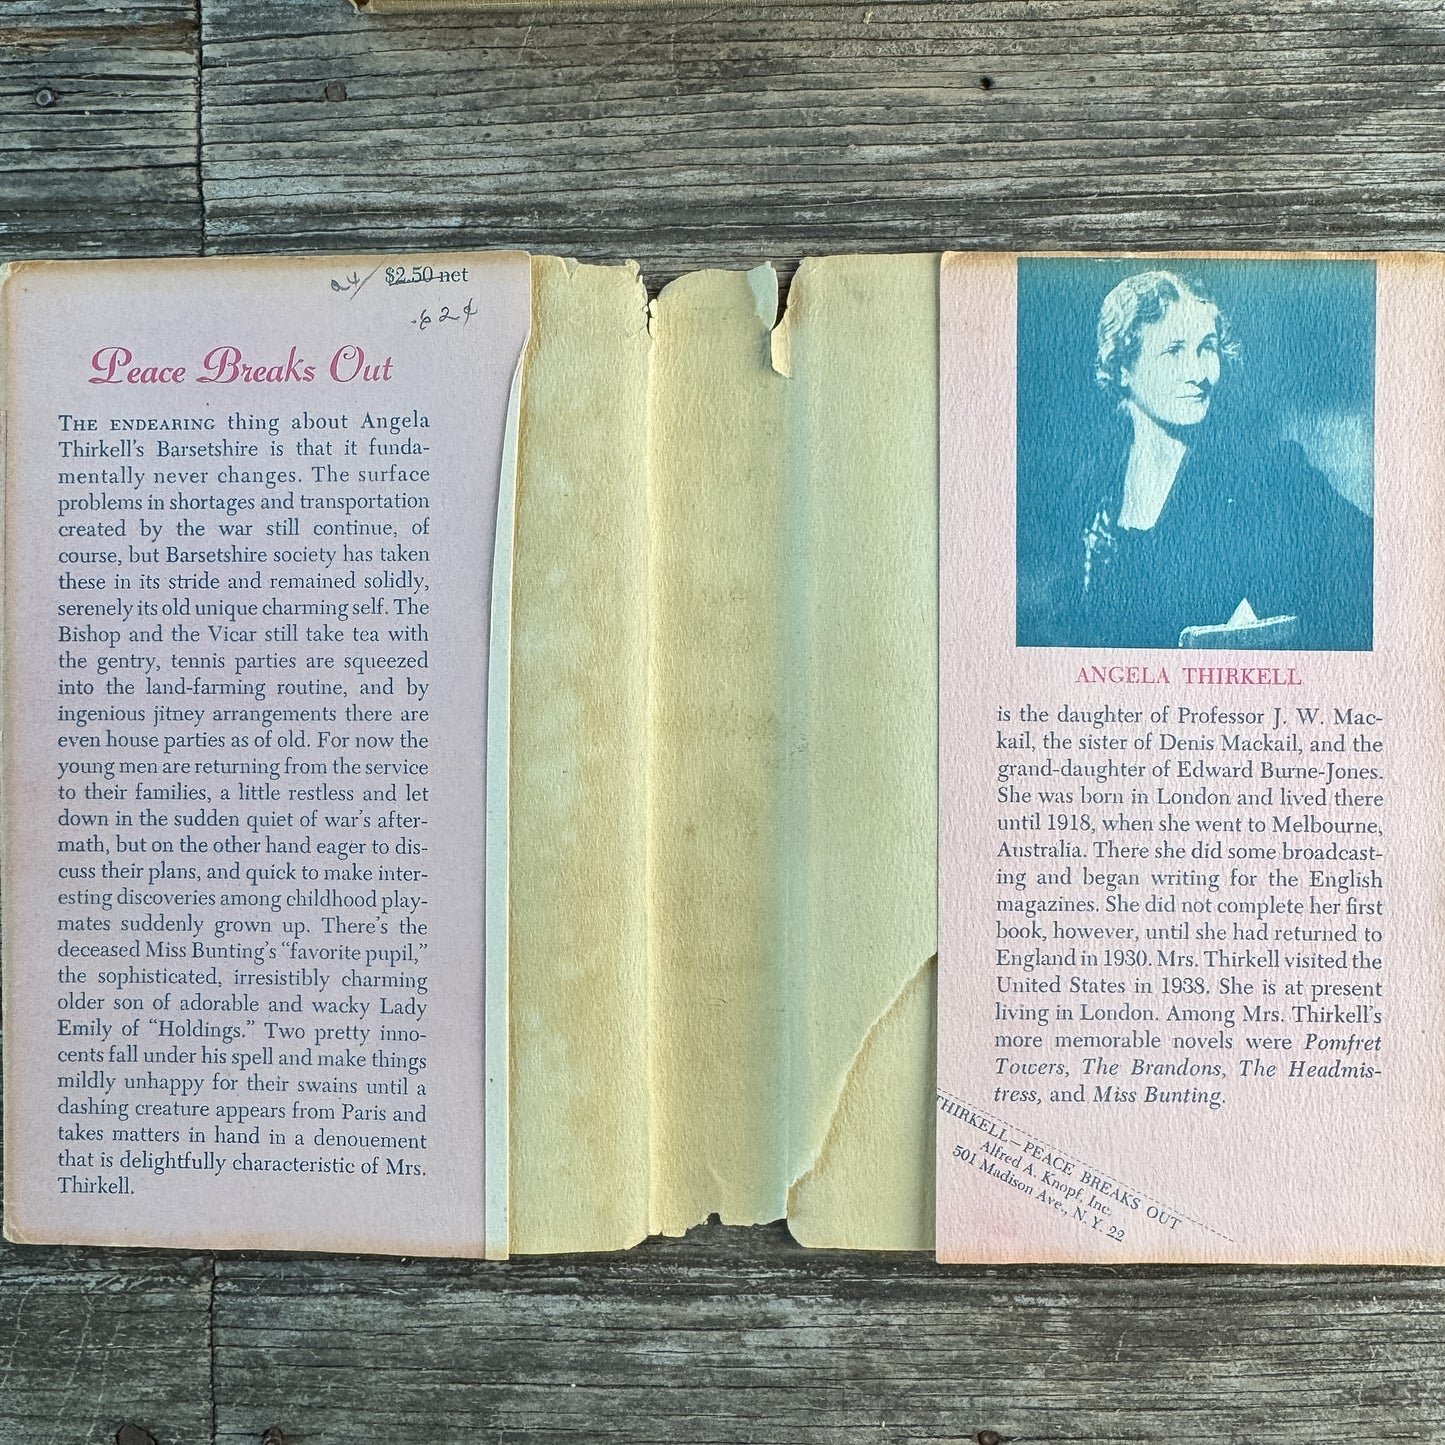 $2.50 net
.62¢
Peace Breaks Out
THE ENDEARING thing about Angela
Thirkell's Barsetshire is that it funda-
mentally never changes. The surface
problems in shortages and transportation
created by the war still continue, of
course, but Barsetshire society has taken
these in its stride and remained solidly,
serenely its old unique charming self. The
Bishop and the Vicar still take tea with
the gentry, tennis parties are squeezed
into the land-farming routine, and by
ingenious jitney arrangements there are
even house parties as of old. For now the
young men are returning from the service
to their families, a little restless and let
down in the sudden quiet of war's after-
math, but on the other hand eager to dis-
cuss their plans, and quick to make inter-
esting discoveries among childhood play-
mates suddenly grown up. There's the
deceased Miss Bunting's "favorite pupil,"
the sophisticated, irresistibly charming
older son of adorable and wacky Lady
Emily of "Holdings." Two pretty inno-
cents fall under his spell and make things
mildly unhappy for their swains until a
dashing creature appears from Paris and
takes matters in hand in a denouement
that is delightfully characteristic of Mrs.
Thirkell.
ANGELA THIRKELL
is the daughter of Professor J. W. Mac-
kail, the sister of Denis Mackail, and the
grand-daughter of Edward Burne-Jones.
She was born in London and lived there
until 1918, when she went to Melbourne,
Australia. There she did some broadcast-
ing and began writing for the English
magazines. She did not complete her first
book, however, until she had returned to
England in 1930. Mrs. Thirkell visited the
United States in 1938. She is at present
living in London. Among Mrs. Thirkell's
more memorable novels were Pomfret
Towers, The Brandons, The Headmis-
tress, and Miss Bunting.
THIRKELL—PEACE BREAKS OUT
Alfred A. Knopf, Inc.
501 Madison Ave., N. Y. 22